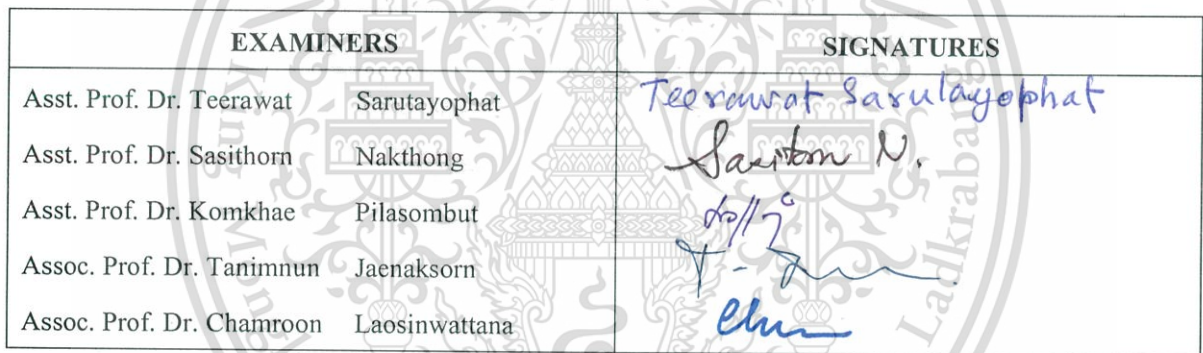 EXAMINERS SIGNATURES
Asst. Prof. Dr. Teerawat Sarutayophat Teerawat Sarulayophat
Asst. Prof. Dr. Sasithorn Nakthong N.
Asst. Prof. Dr. Komkhae Pilasombut
Assoc. Prof. Dr. Tanimnun Jaenaksorn T-
Assoc. Prof. Dr. Chamroon Laosinwattana
King Mong
Ladkrabang